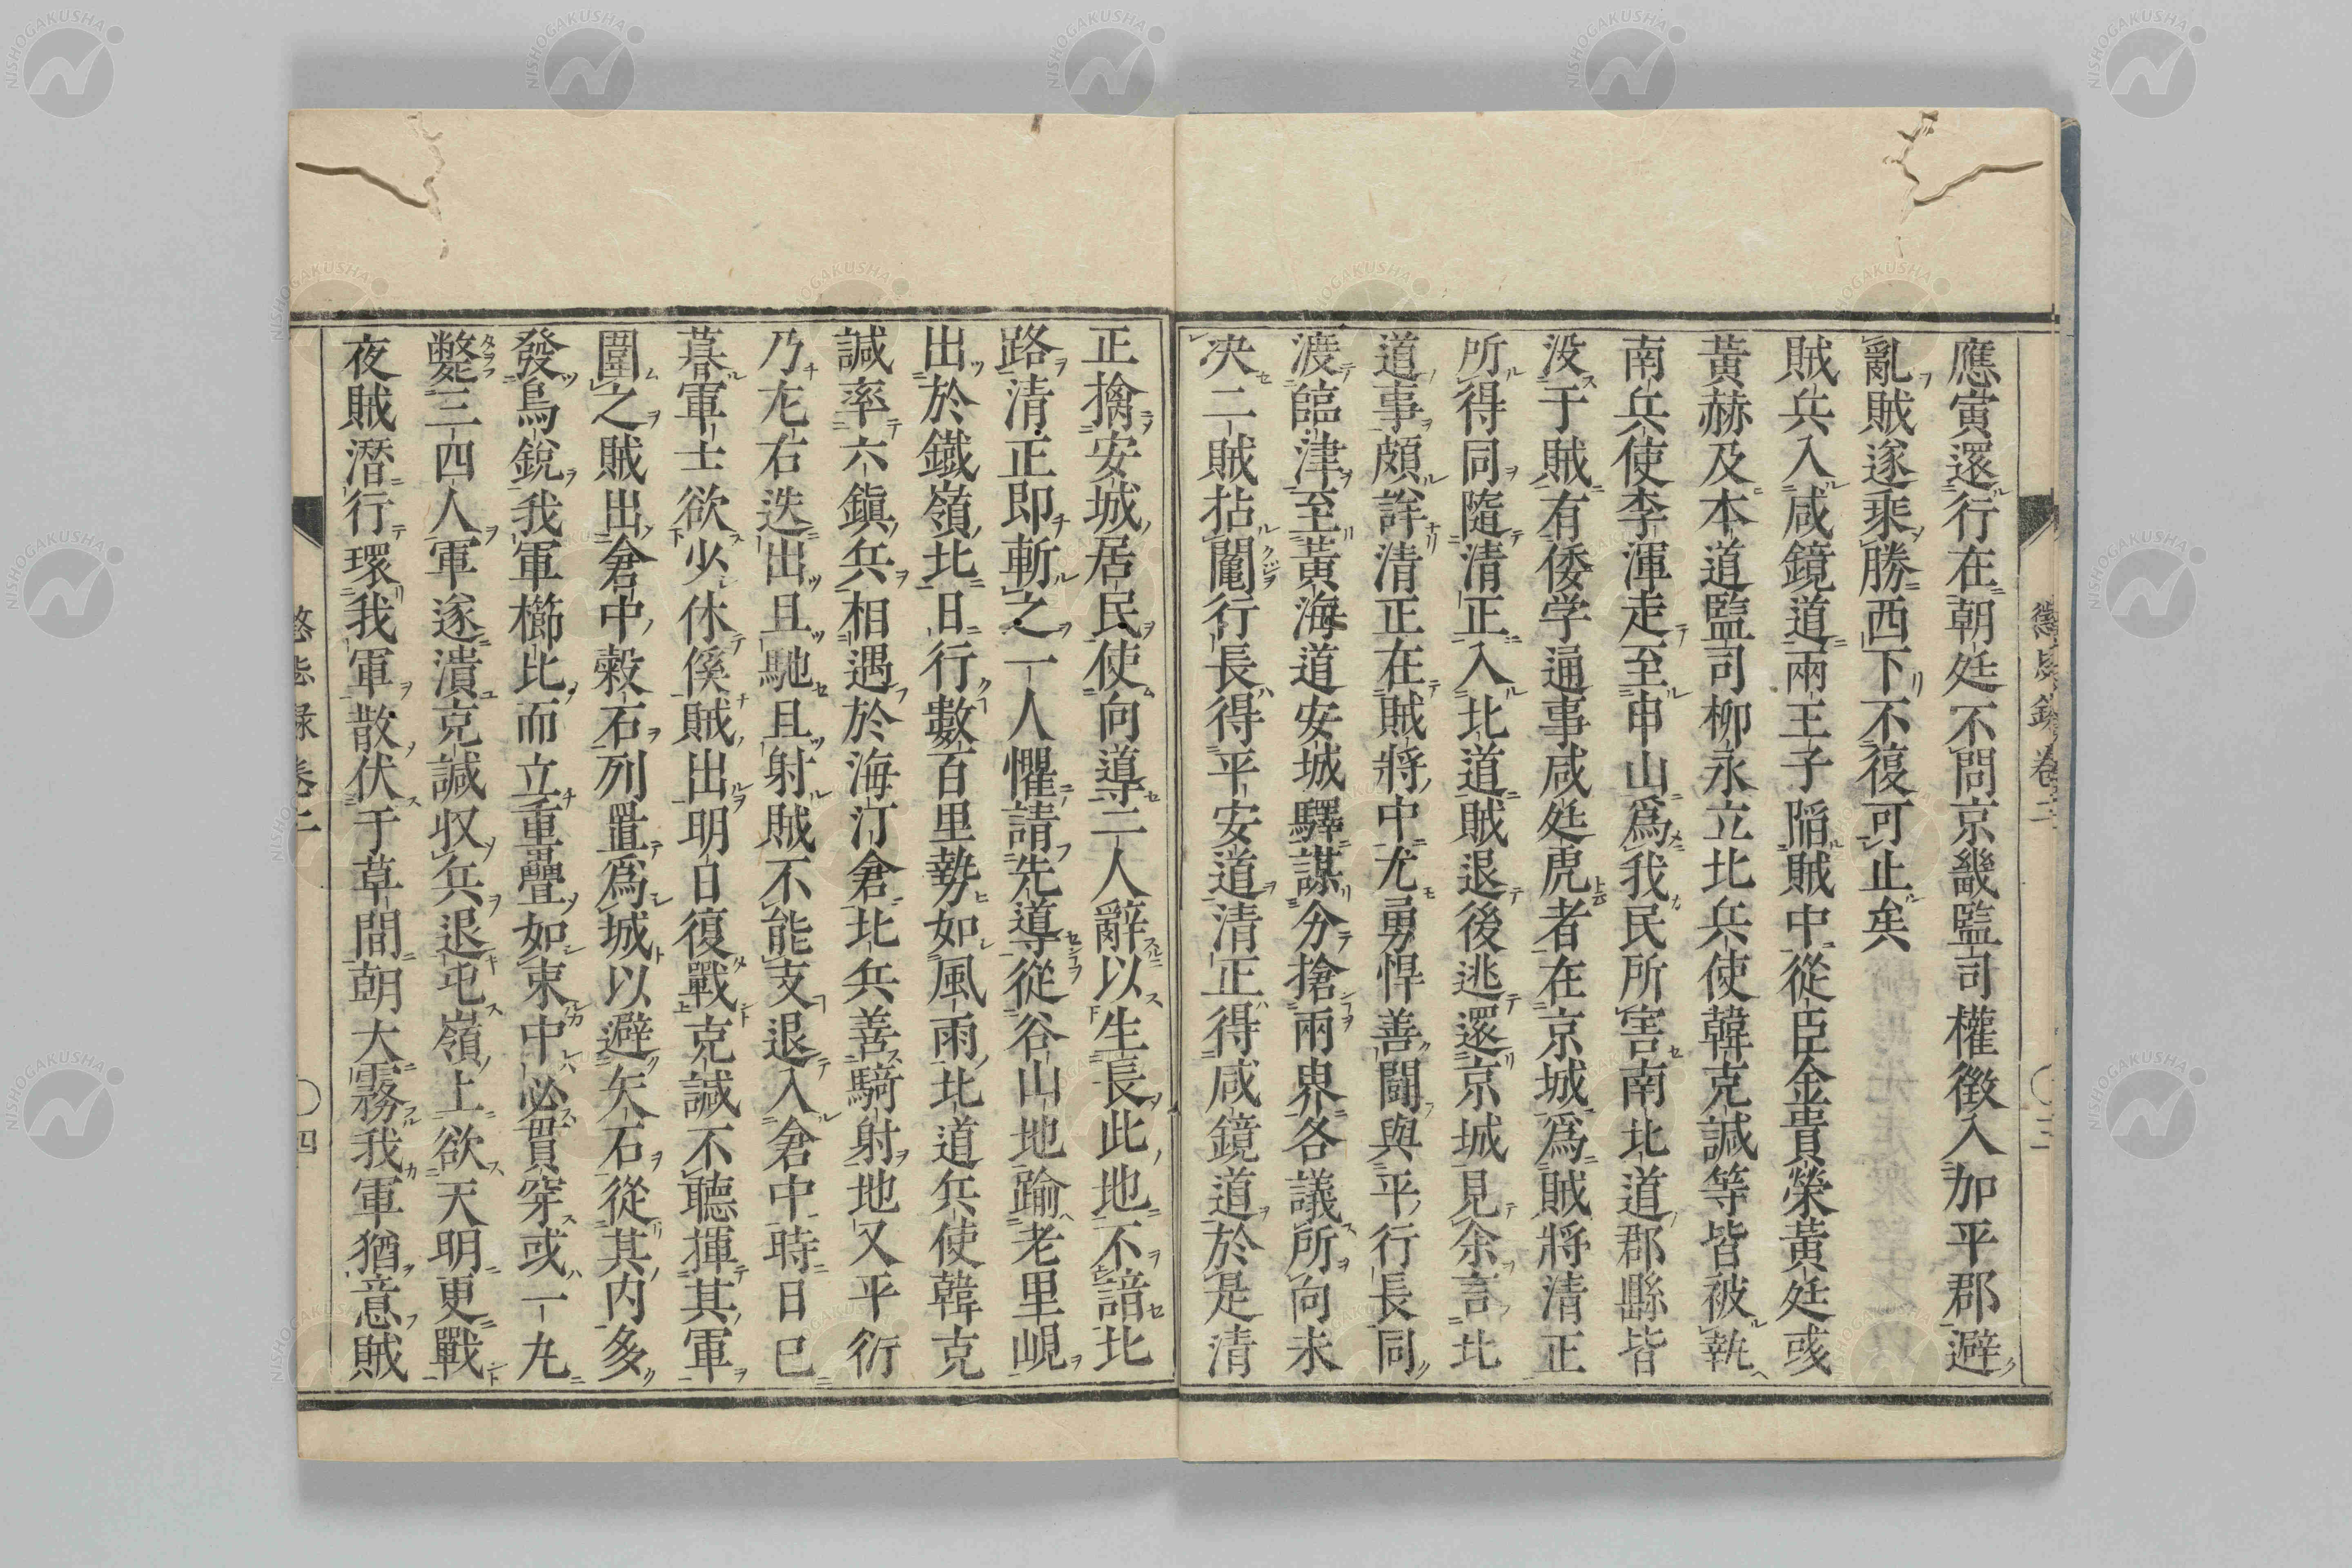 應寅還行在朝廷不問京畿監司權徵入加平郡避
亂賊遂乘勝西下不復可止矣
賊兵入咸鏡道兩王子陷賊中從臣金貴榮黃廷彧
黃赫及本道監司柳永立北兵使韓克諴等皆被執
南兵使李渾走至甲山爲我民所害南北道郡縣皆
没于賊有倭学通事咸廷虎者在京城爲賊將清正
所得同隨清正入北道賊退後逃還京城見余言北
道事頗詳清正在賊將中尤勇悍善闘與平行長同
渡臨津至黃海道安城驛謀分搶兩界各議所向未
决二賊拈鬮行長得平安道清正得咸鏡道於是清
正擒安城居民使向導二人辭以生長此地不諳北
路清正即斬之一人懼請先導從谷山地踰老里峴
出於鐵嶺北日行數百里勢如風雨北道兵使韓克
諴率六鎭兵相遇於海汀倉北兵善騎射地又平衍
乃左右迭出且馳且射賊不能支退入倉中時日已
暮軍士欲少休徯賊出明日復戰克諴不聽揮其軍
圍之賊出倉中穀石列置爲城以避矢石從其内多
發鳥銳我軍櫛比而立重疊如束中必貫穿或一丸
斃三四人軍遂潰克諴収兵退屯嶺上欲天明更戰
夜賊潛行環我軍散伏于草間朝大霧我軍猶意賊
懲毖錄卷二
三
四
NISHOGAKUSHA